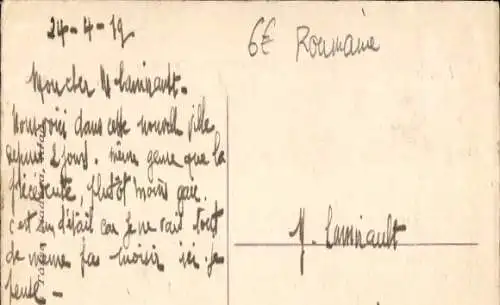 24-4-19
6€ Roumanie
Mon cher M. Lamirault.
Nous voici dans cette nouvelle ville
depuis 2 jours. même genre que la
précédente, plutôt moins gaie.
c'est un détail car je ne vais tout
de même pas moisir ici je
pense -
M. Lamirault